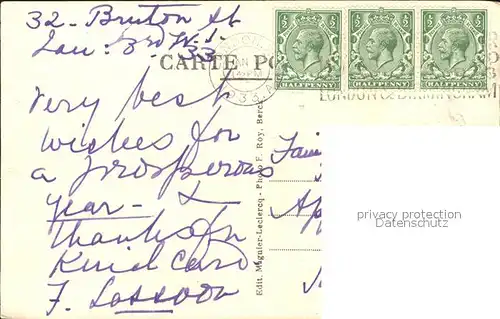 32 - Bruton St
Jan: 3rd. W.1.
33
CARTE PO
Very best
wishes for
a prosperous
year - &
thanks for
kind card
F. Sassoon
HALFPENNY
HALFPENNY
HALFPENNY
1933
LONDON & BIRMINGHAM
Edit. Magnier-Leclercq - Photo F. Roy, Berck
privacy protection
Datenschutz